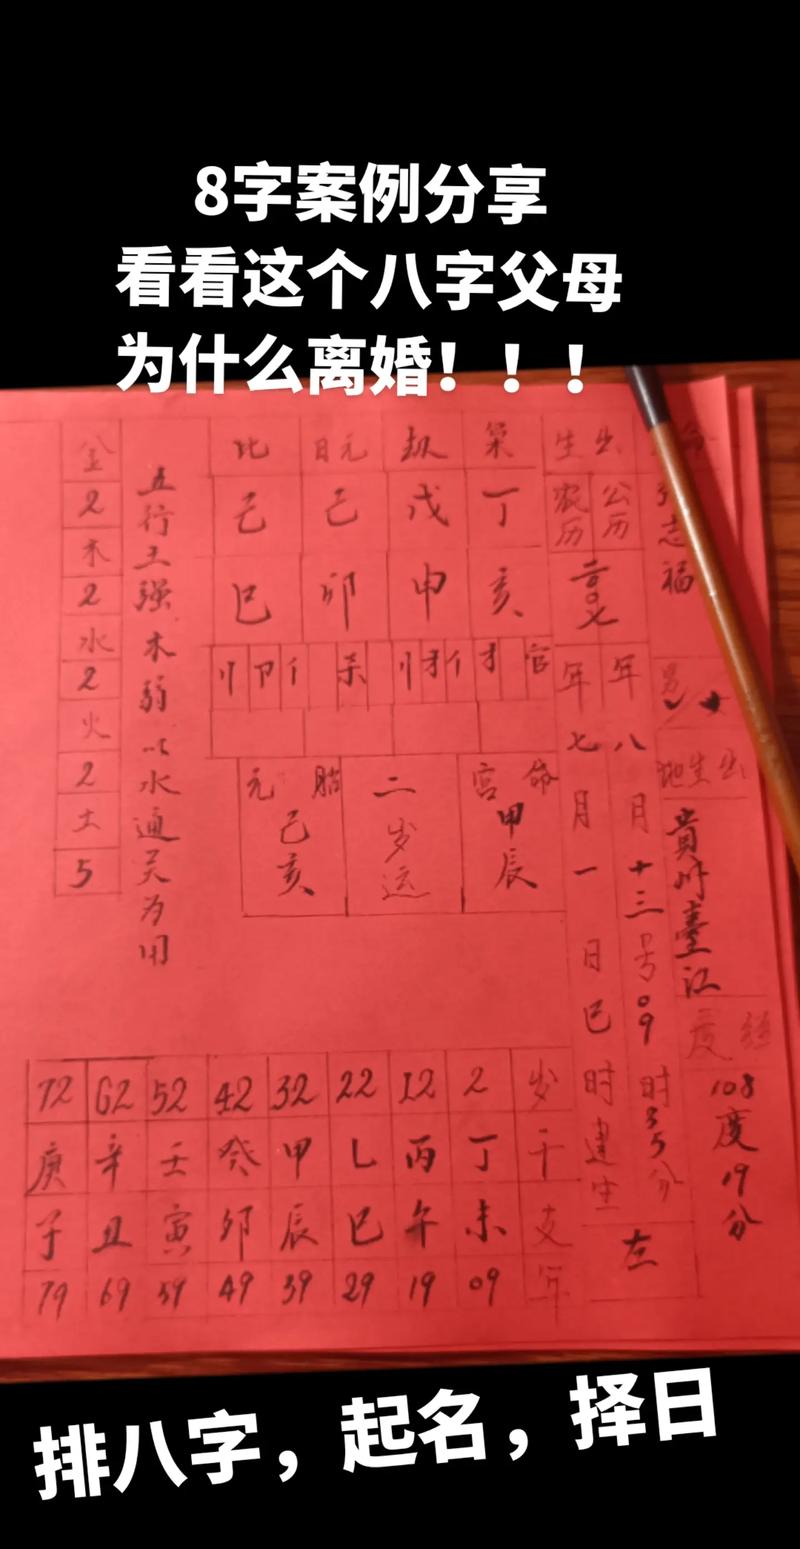 8字案例分享
看看这个八字父母
为什么离婚！！！
生出
公历
农历
志福
男
二〇〇七
年八月十三号09时35分
年七月一日巳时建生
左
地生出
貴州臺江
度經
108度19分
枭 劫 日元 比
丁 戊 己 己
亥 申 卯 巳
官 杀
命宫
甲辰
二岁运
胎元
己亥
五行土强木弱以水通关为用
金
2
木
2
水
2
火
2
土
5
岁 2 12 22 32 42 52 62 72
干 丁 丙 乙 甲 癸 壬 辛 庚
支 未 午 巳 辰 卯 寅 丑 子
年 09 19 29 39 49 59 69 79
排八字，起名，择日